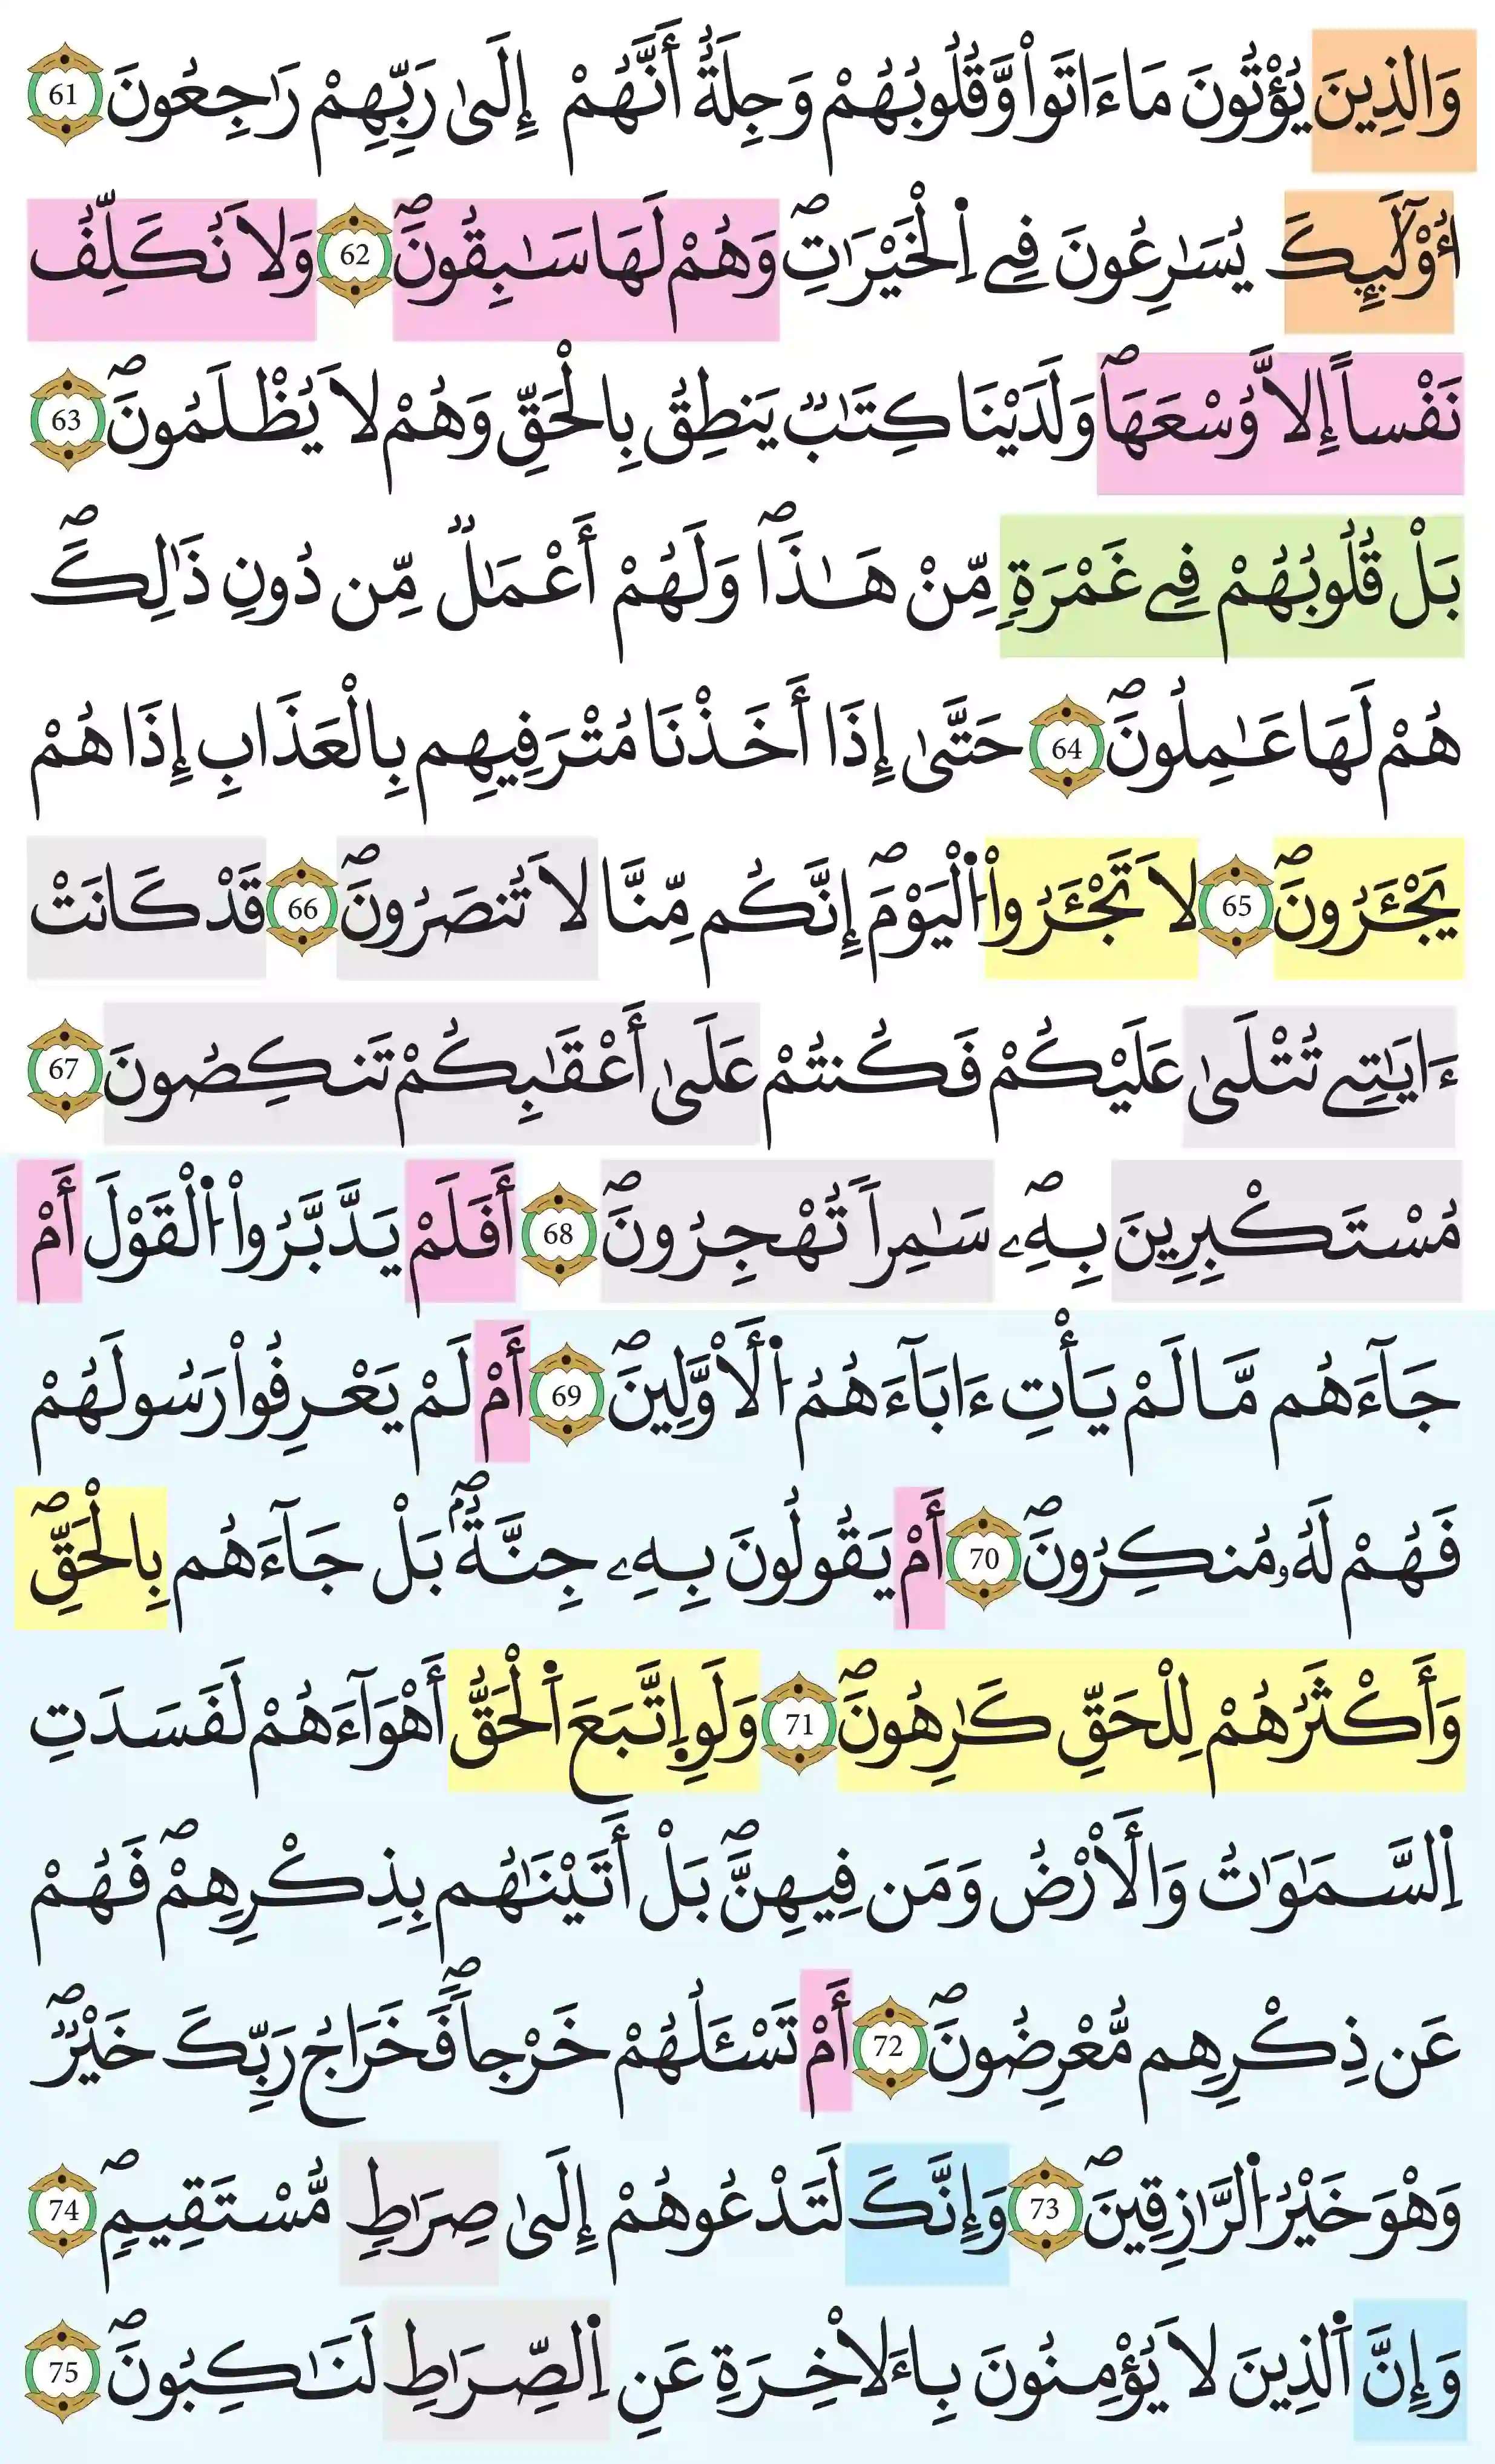 وَالذِينَ يُؤْتُونَ مَا ءَاتَواْ وَّقُلُوبُهُمْ وَجِلَةٌ أَنَّهُمْ إِلَىٰ رَبِّهِمْ رَٰجِعُونَ 61
أُوْلَٰٓئِكَ يُسَٰرِعُونَ فِے اِ۬لْخَيْرَٰتِۖ وَهُمْ لَهَا سَٰبِقُونَۖ 62 وَلَا نُكَلِّفُ
نَفْساً إِلَّا وُسْعَهَاۖ وَلَدَيْنَا كِتَٰبٞ يَنطِقُ بِالْحَقِّ وَهُمْ لَا يُظْلَمُونَۖ 63
بَلْ قُلُوبُهُمْ فِے غَمْرَةٖ مِّنْ هَٰذَاۖ وَلَهُمْ أَعْمَٰلٞ مِّن دُونِ ذَٰلِكَۖ
هُمْ لَهَا عَٰمِلُونَۖ 64 حَتَّىٰ إِذَا أَخَذْنَا مُتْرَفِيهِم بِالْعَذَابِ إِذَا هُمْ
يَجْـَٔرُونَۖ 65 لَا تَجْـَٔرُواْ اُ۬لْيَوْمَۖ إِنَّكُم مِّنَّا لَا تُنصَرُونَۖ 66 قَدْ كَانَتْ
ءَايَٰتِے تُتْلَىٰ عَلَيْكُمْ فَكُنتُمْ عَلَىٰ أَعْقَٰبِكُمْ تَنكِصُونَ 67
مُسْتَكْبِرِينَ بِهِۦۖ سَٰمِراً تُهْجِرُونَۖ 68 أَفَلَمْ يَدَّبَّرُواْ اُ۬لْقَوْلَ أَمْ
جَآءَهُم مَّا لَمْ يَأْتِ ءَابَآءَهُمُ اُ۬لَاوَّلِينَۖ 69 أَمْ لَمْ يَعْرِفُواْ رَسُولَهُمْ
فَهُمْ لَهُۥ مُنكِرُونَۖ 70 أَمْ يَقُولُونَ بِهِۦ جِنَّةُۢۖ بَلْ جَآءَهُم بِالْحَقِّۖ
وَأَكْثَرُهُمْ لِلْحَقِّ كَٰرِهُونَۖ 71 وَلَوِ اِ۪تَّبَعَ اَ۬لْحَقُّ أَهْوَآءَهُمْ لَفَسَدَتِ
اِ۬لسَّمَٰوَٰتُ وَالَارْضُ وَمَن فِيهِنَّۖ بَلْ أَتَيْنَٰهُم بِذِكْرِهِمْۖ فَهُمْ
عَن ذِكْرِهِم مُّعْرِضُونَۖ 72 أَمْ تَسْـَٔلُهُمْ خَرْجاً فَخَرَاجُ رَبِّكَ خَيْرٞۖ
وَهْوَ خَيْرُ اُ۬لرَّٰزِقِينَۖ 73 وَإِنَّكَ لَتَدْعُوهُمْ إِلَىٰ صِرَٰطٖ مُّسْتَقِيمٖۖ 74
وَإِنَّ اَ۬لذِينَ لَا يُؤْمِنُونَ بِالَاخِرَةِ عَنِ اِ۬لصِّرَٰطِ لَنَٰكِبُونَۖ 75